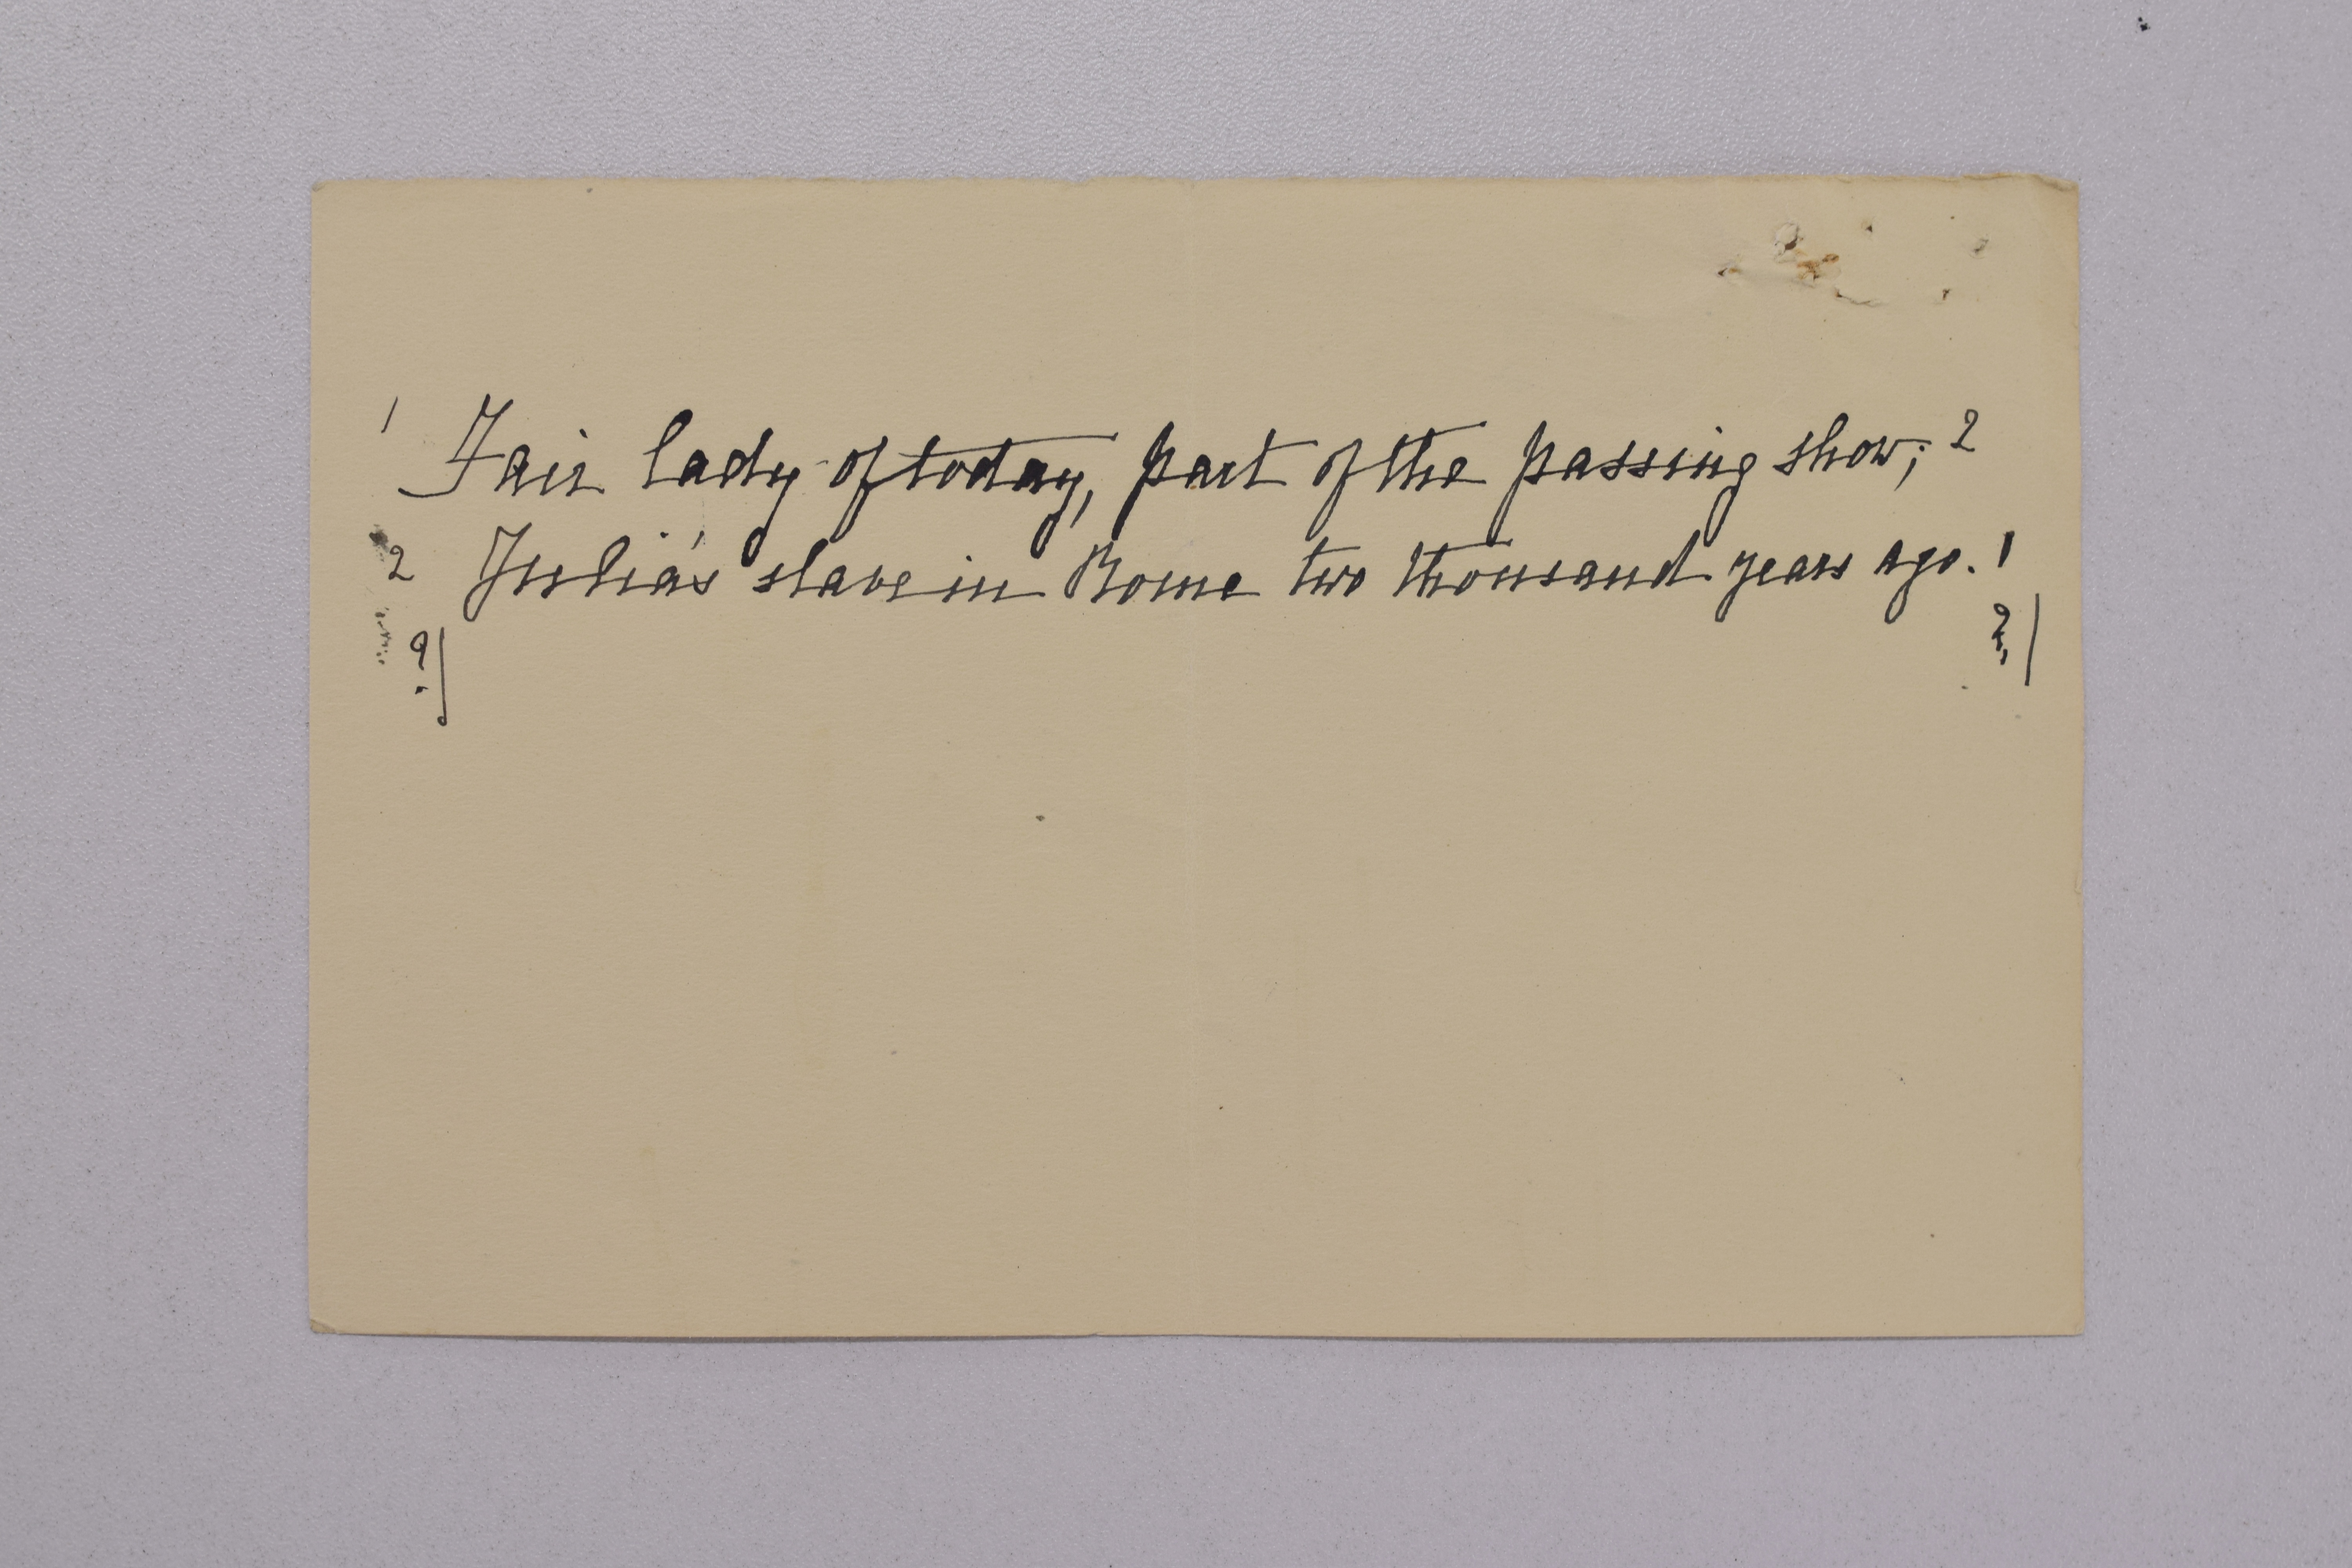 1 Fair lady of today, part of the passing show; 2
2 Julia's slave in Rome two thousand years ago. 1
?| ?|